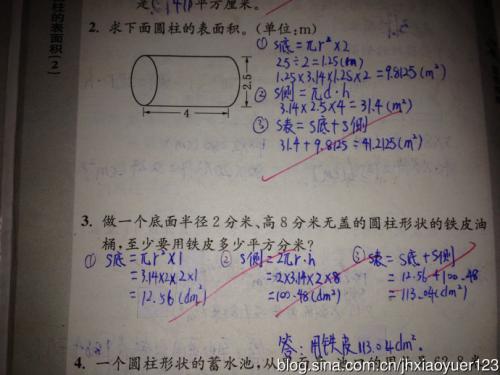 柱的表面积（2）
平方厘米。
2. 求下面圆柱的表面积。(单位:m)
2.5
4
① S底=πr²×2
2.5÷2=1.25(m)
1.25×3.14×1.25×2=9.8125(m²)
② S侧=πd·h
3.14×2.5×4=31.4(m²)
③ S表=S底+S侧
31.4+9.8125=41.2125(m²)
3. 做一个底面半径2分米、高8分米无盖的圆柱形状的铁皮油
桶,至少要用铁皮多少平方分米?
① S底=πr²×1
=3.14×2×2×1
=12.56(dm²)
② S侧=2πr·h
=2×3.14×2×8
=100.48(dm²)
③ S表=S底+S侧
=12.56+100.48
=113.04(dm²)
答:用铁皮113.04dm².
4. 一个圆柱形状的蓄水池,从
blog.sina.com.cn/jhxiaoyuer123